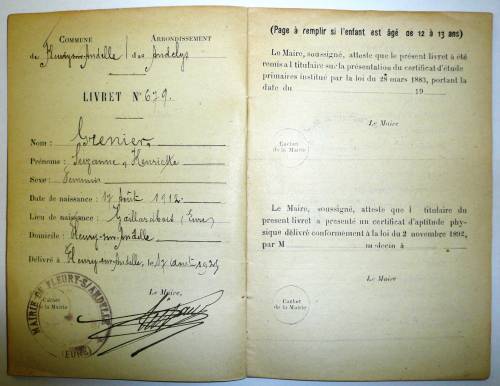 COMMUNE
de Fleury-sur-Andelle
ARRONDISSEMENT
des Andelys
LIVRET N° 679.
Nom : Grenier
Prénoms : Suzanne, Henriette
Sexe : Féminin
Date de naissance : 17 Août 1912
Lieu de naissance : Gaillardbois (Eure)
Domicile : Fleury-sur-Andelle
Délivré à Fleury-sur-Andelle, le 17 Août 1925
Le Maire,
MAIRIE DE FLEURY-S/ANDELLE
Cachet
de la Mairie
(EURE)
(Page à remplir si l'enfant est âgé de 12 à 13 ans)
Le Maire, soussigné, atteste que le présent livret a été
remis al titulaire sur la présentation du certificat d'étude
primaires institué par la loi du 28 mars 1883, portant la
date du 19
Le Maire
Cachet
de la Mairie
Le Maire, soussigné, atteste que l titulaire du
présent livret a présenté un certificat d'aptitude phy-
sique délivré conformément à la loi du 2 novembre 1892,
par M médecin à
Le Maire,
Cachet
de la Mairie